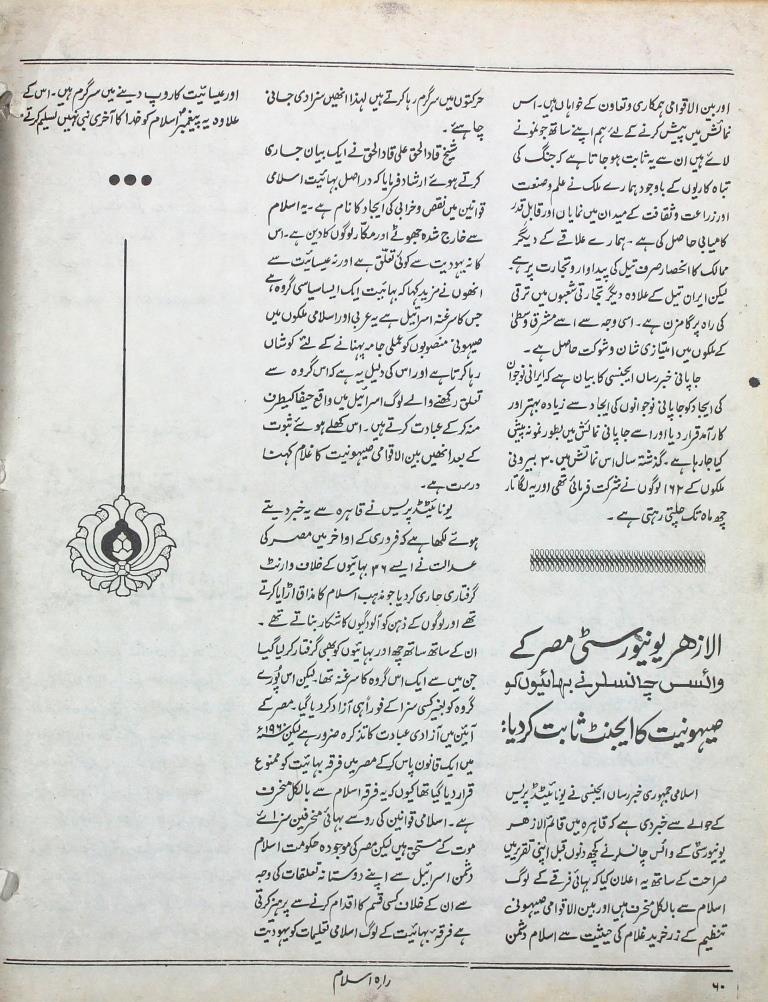 اور بین الاقوامی ہمکاری و تعاون کے خواہاں ہیں۔ اس
نمائش میں پیش کرنے کے لئے ہم اپنے ساتھ جو نمونے
لائے ہیں ان سے یہ ثابت ہو جاتا ہے کہ جنگ کی
تباہ کاریوں کے باوجود ہمارے ملک نے علم و صنعت
اور زراعت و ثقافت کے میدان میں نمایاں اور قابل قدر
کامیابی حاصل کی ہے۔ ہمارے علاقے کے دیگر
ممالک کا انحصار صرف تیل کی پیداوار و تجارت پر ہے
لیکن ایران تیل کے علاوہ دیگر تجارتی شعبوں میں ترقی
کی راہ پر گامزن ہے۔ اسی وجہ سے اسے مشرق وسطیٰ
کے ملکوں میں امتیازی شان و شوکت حاصل ہے۔
جاپانی خبر رساں ایجنسی کا بیان ہے کہ ایرانی نوجوان
کی ایجاد کو جاپانی نوجوانوں کی ایجاد سے زیادہ بہتر اور
کار آمد قرار دیا اور اسے جاپانی نمائش میں بطور نمونہ پیش
کیا جا رہا ہے۔ گذشتہ سال اس نمائش میں ۳۰ بیرونی
ملکوں کے ۱۶۲ لوگوں نے شرکت فرمائی تھی اور یہ لگاتار
چھ ماہ تک چلتی رہتی ہے۔
الازھر یونیورسٹی مصر کے
وائس چانسلر نے بہائیوں کو
صیہونیت کا ایجنٹ ثابت کردیا:
اسلامی جمہوری خبر رساں ایجنسی نے یونائیٹڈ پریس
کے حوالے سے خبر دی ہے کہ قاہرہ میں قائم الازھر
یونیورسٹی کے وائس چانسلر نے کچھ دنوں قبل اپنی تقریر میں
صراحت کے ساتھ یہ اعلان کیا کہ بہائی فرقے کے لوگ
اسلام سے بالکل منحرف ہیں اور بین الاقوامی صیہونی
تنظیم کے زر خرید غلام کی حیثیت سے اسلام دشمن
حرکتوں میں سرگرم رہا کرتے ہیں لہذا انھیں سزا دی جانی
چاہئے۔
شیخ قاد الحق علی قاد الحق نے ایک بیان جاری
کرتے ہوئے ارشاد فرمایا کہ دراصل بہائیت اسلامی
قوانین میں نقص و خرابی کی ایجاد کا نام ہے۔ یہ اسلام
سے خارج شدہ جھوٹے اور مکار لوگوں کا دین ہے۔ اس
کا نہ یہودیت سے کوئی تعلق ہے اور نہ عیسائیت سے
انھوں نے مزید کہا کہ بہائیت ایک ایسا سیاسی گروہ ہے
جس کا سرغنہ اسرائیل ہے یہ عربی اور اسلامی ملکوں میں
صیہونی منصوبوں کو عملی جامہ پہنانے کے لئے کوشاں
رہا کرتا ہے اور اس کی دلیل یہ ہے کہ اس گروہ سے
تعلق رکھنے والے لوگ اسرائیل میں واقع حیفا کیطرف
منہ کر کے عبادت کرتے ہیں۔ اس کھلے ہوئے ثبوت
کے بعد انھیں بین الاقوامی صیہونیت کا غلام کہنا
درست ہے۔
یونائیٹڈ پریس نے قاہرہ سے یہ خبر دیتے
ہوئے لکھا ہے کہ فروری کے اواخر میں مصر کی
عدالت نے ایسے ۴۶ بہائیوں کے خلاف وارنٹ
گرفتاری جاری کر دیا جو مذہب اسلام کا مذاق اڑایا کرتے
تھے اور لوگوں کے ذہن کو آلودگیوں کا شکار بناتے تھے۔
ان کے ساتھ ساتھ چھ اور بہائیوں کو بھی گرفتار کر لیا گیا
جن میں سے ایک اس گروہ کا سرغنہ تھا۔ لیکن اس پورے
گروہ کو بغیر کسی سزا کے فوراً ہی آزاد کر دیا گیا۔ مصر کے
آئین میں آزادی عبادت کا تذکرہ ضرور ہے لیکن ۱۹۶۰ء
میں ایک قانون پاس کر کے مصر میں فرقہ بہائیت کو ممنوع
قرار دیا گیا تھا کیوں کہ یہ فرقہ اسلام سے بالکل منحرف
ہے۔ اسلامی قوانین کی رو سے بہائی منحرفین سزائے
موت کے مستحق ہیں لیکن مصر کی موجودہ حکومت اسلام
دشمن اسرائیل سے اپنے دوستانہ تعلقات کی وجہ
سے ان کے خلاف کسی قسم کا اقدام کرنے سے پرہیز کرتی
ہے فرقہ بہائیت کے لوگ اسلامی تعلیمات کو یہودیت
اور عیسائیت کا روپ دینے میں سرگرم ہیں۔ اس کے
علاوہ یہ پیغمبر اسلام کو خدا کا آخری نبی نہیں تسلیم کرتے۔
راہ اسلام
۶۰